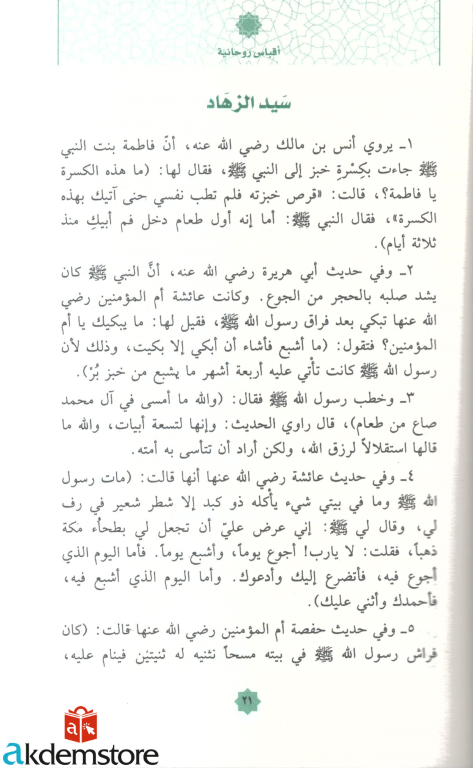 أقباس روحانية
سَيد الزهَاد
١ـ يروي أنس بن مالك رضي الله عنه، أنّ فاطمة بنت النبي
ﷺ جاءت بكِسْرةِ خبز إلى النبي ﷺ، فقال لها: (ما هذه الكسرة
يا فاطمة؟، قالت: «قرص خبزته فلم تطب نفسي حتى آتيك بهذه
الكسرة»، فقال النبي ﷺ: أما إنه أول طعام دخل فم أبيكِ منذ
ثلاثة أيام).
٢ـ وفي حديث أبي هريرة رضي الله عنه، أنَّ النبي ﷺ كان
يشد صلبه بالحجر من الجوع. وكانت عائشة أم المؤمنين رضي
الله عنها تبكي بعد فراق رسول الله ﷺ، فقيل لها: ما يبكيك يا أم
المؤمنين؟ فتقول: (ما أشبع فأشاء أن أبكي إلا بكيت، وذلك لأن
رسول الله ﷺ كانت تأتي عليه أربعة أشهر ما يشبع من خبز بُرْ).
٣ـ وخطب رسول الله ﷺ فقال: (والله ما أمسى في آل محمد
صاع من طعام)، قال راوي الحديث: وإنها لتسعة أبيات، والله ما
قالها استقلالاً لرزق الله، ولكن أراد أن تتأسى به أمته.
٤ـ وفي حديث عائشة رضي الله عنها أنها قالت: (مات رسول
الله ﷺ وما في بيتي شيء يأكله ذو كبد إلا شطر شعير في رف
لي، وقال لي ﷺ: إني عرض عليّ أن تجعل لي بطحاء مكة
ذهباً، فقلت: لا يارب! أجوع يوماً، وأشبع يوماً. فأما اليوم الذي
أجوع فيه، فأتضرع إليك وأدعوك. وأما اليوم الذي أشبع فيه،
فأحمدك وأثني عليك).
٥ـ وفي حديث حفصة أم المؤمنين رضي الله عنها قالت: (كان
فراش رسول الله ﷺ في بيته مسحاً نثنيه له ثنيتيْن فينام عليه،
٢١
akdemstore